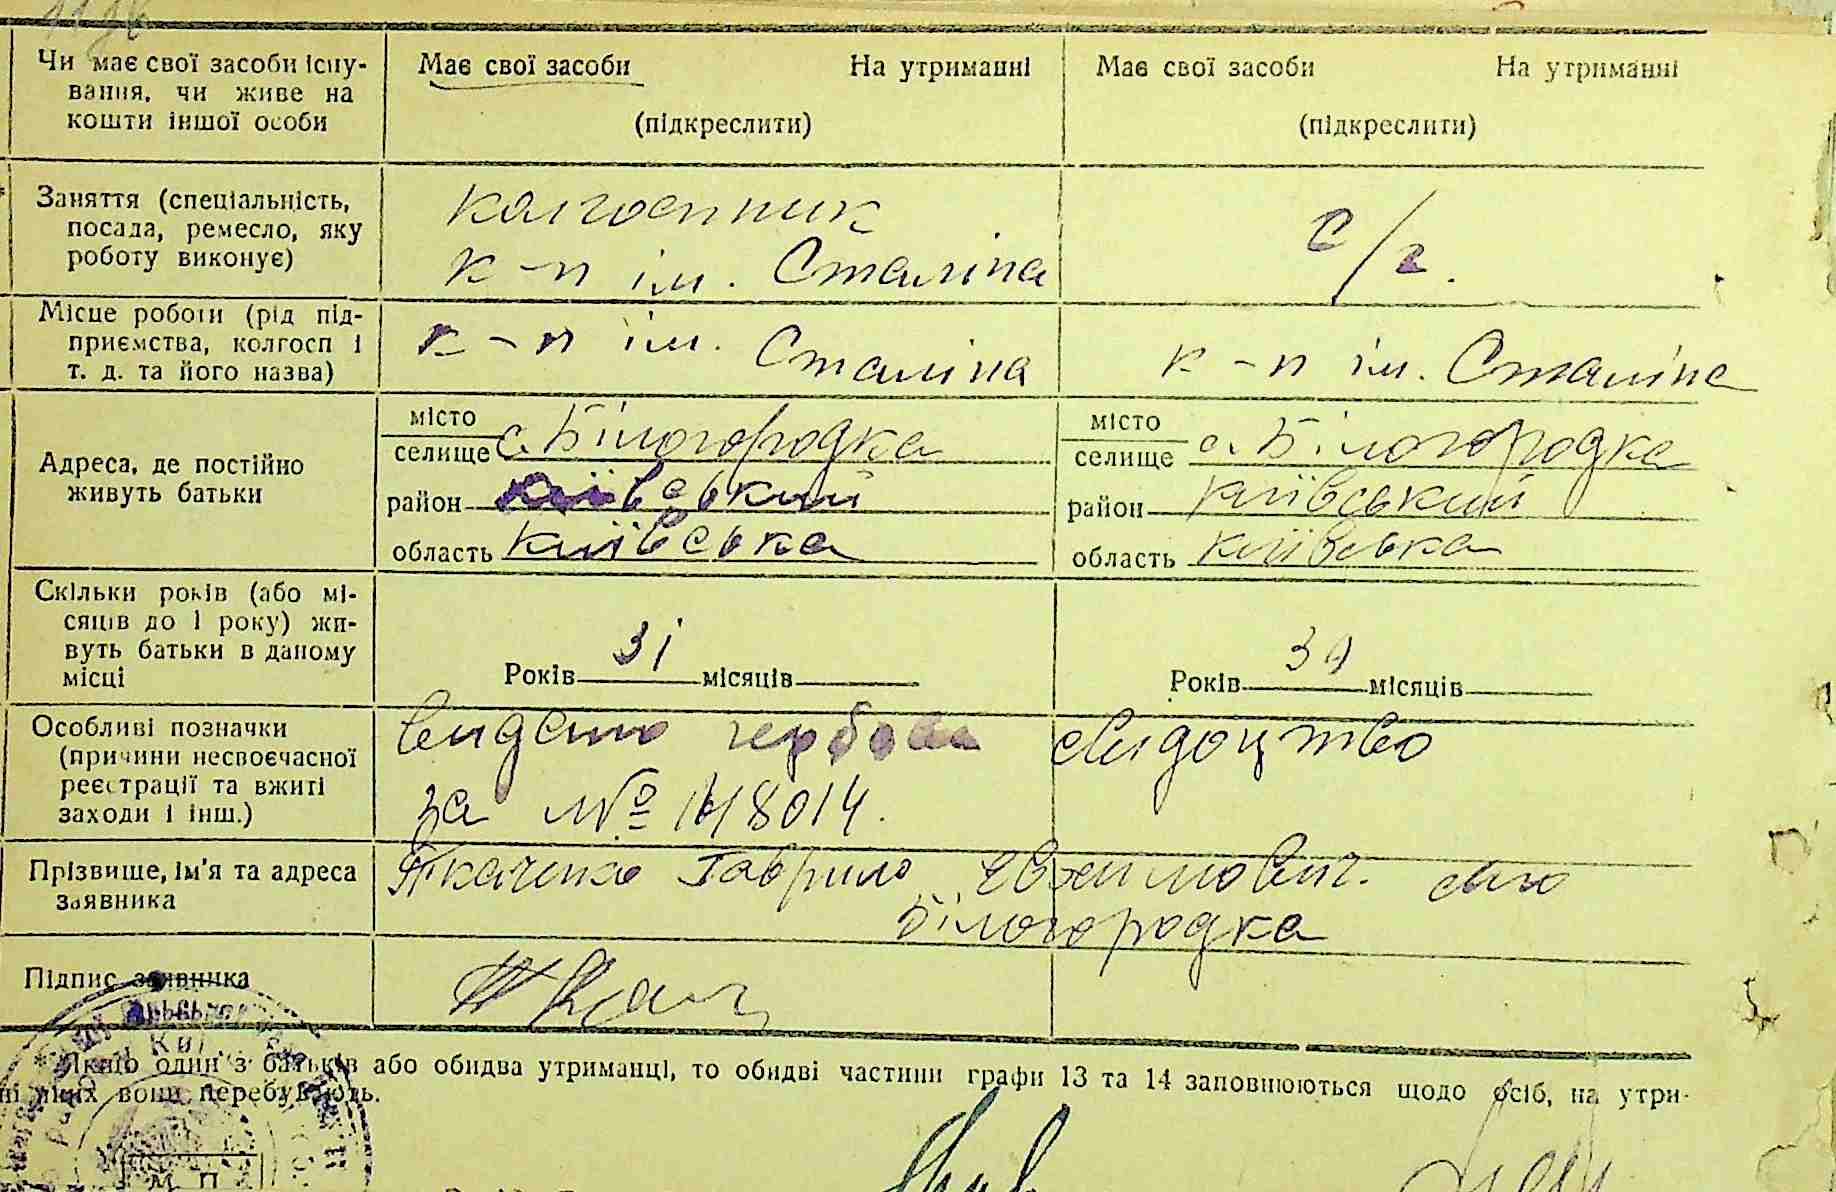 Чи має свої засоби існу-
вання, чи живе на
кошти іншої особи
Має свої засоби На утриманні
(підкреслити)
Має свої засоби На утриманні
(підкреслити)
Заняття (спеціальність,
посада, ремесло, яку
роботу виконує)
колгоспник
к-п ім. Сталіна
с/г.
Місце роботи (рід під-
приємства, колгосп і
т. д. та його назва)
к-п ім. Сталіна
к-п ім. Сталіна
Адреса, де постійно
живуть батьки
місто
селище с. Білогородка
район Київський
область Київська
місто
селище с. Білогородка
район Київський
область Київська
Скільки років (або мі-
сяців до 1 року) жи-
вуть батьки в даному
місці
Років 31 місяців
Років 30 місяців
Особливі позначки
(причини несвоєчасної
реєстрації та вжиті
заходи і інш.)
видано гербове свидоцтво
за № 148014.
Прізвище, ім'я та адреса
заявника
Ткаченко Гаврило Євхимович. с-ло
Білогородка
Підпис заявника
Ткач
* Якщо один з батьків або обидва утриманці, то обидві частини графи 13 та 14 заповнюються щодо осіб, на утри-
ні яких вони перебувають.
М П